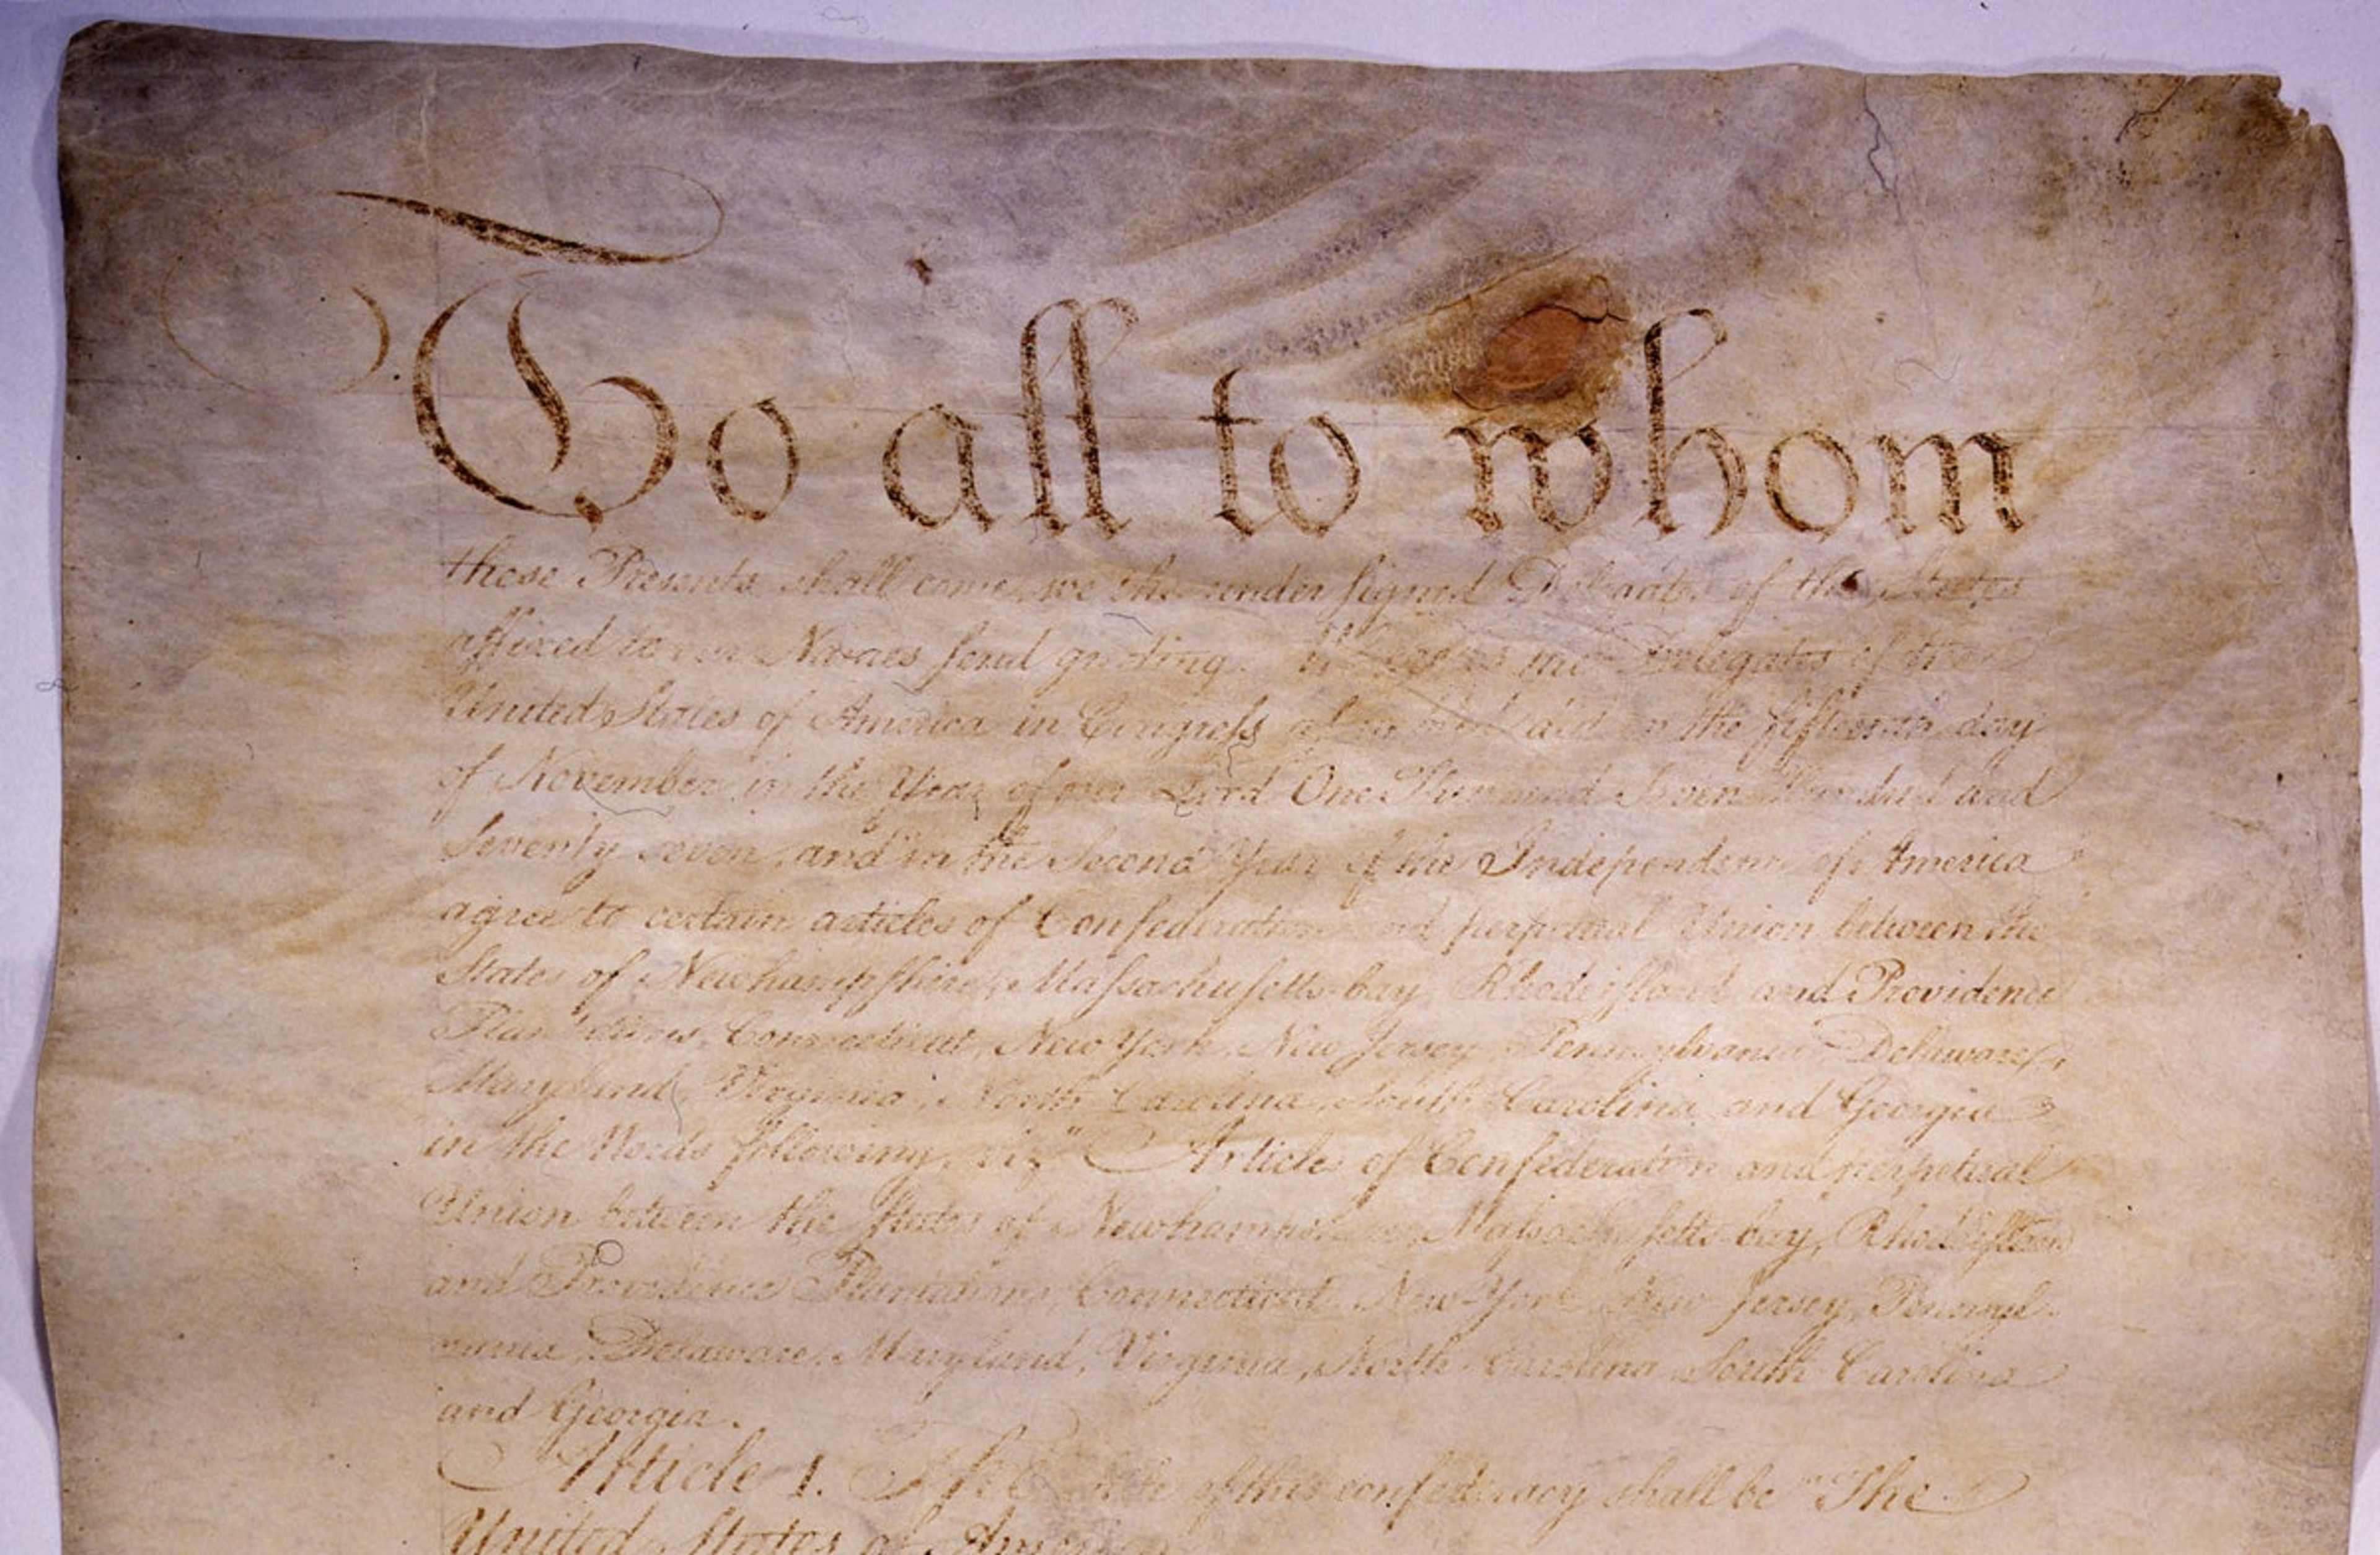 To all to whom
these Presents shall come, we the under signed Delegates of the States
affixed to our Names send greeting. Whereas the Delegates of the
United States of America in Congress assembled did on the fifteenth day
of November in the Year of our Lord One Thousand Seven Hundred and
Seventy seven, and in the Second Year of the Independence of America
agree to certain articles of Confederation and perpetual Union between the
States of Newhampshire, Massachusetts-bay, Rhodeisland and Providence
Plantations, Connecticut, New York, New Jersey, Pennsylvania, Delaware,
Maryland, Virginia, North Carolina, South Carolina and Georgia
in the Words following, viz. "Articles of Confederation and perpetual
Union between the States of Newhampshire, Massachusetts-bay, Rhodeisland
and Providence Plantations, Connecticut, New-York, New-Jersey, Pennsyl-
vania, Delaware, Maryland, Virginia, North-Carolina, South-Carolina
and Georgia.
Article I. The Stile of this confederacy shall be "The
United States of America